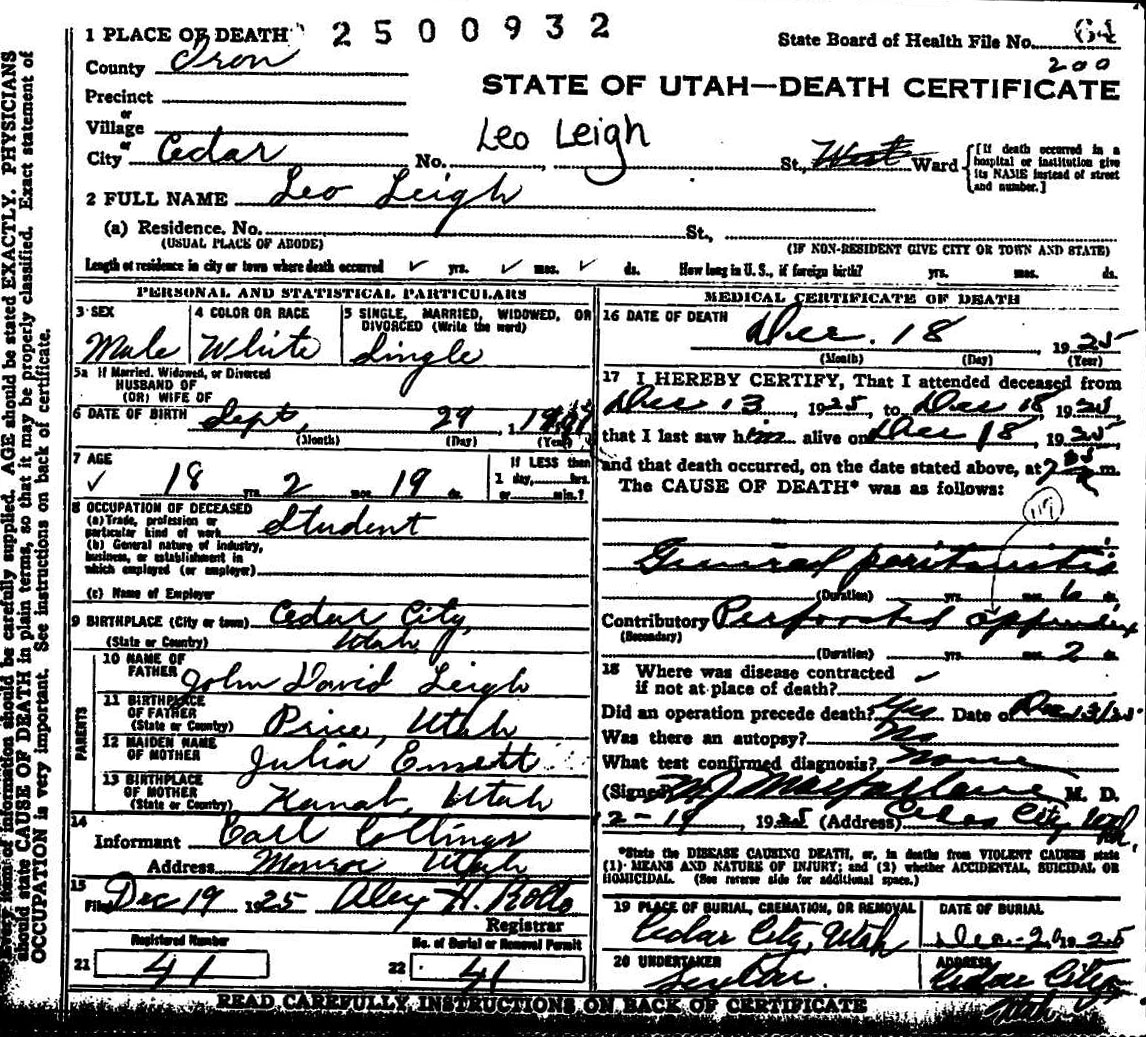 1 PLACE OF DEATH 2500932
State Board of Health File No. 64
County Iron
200
STATE OF UTAH—DEATH CERTIFICATE
Precinct
or
Village
Leo Leigh
or
City Cedar No. St., West Ward
[If death occurred in a
hospital or institution give
its NAME instead of street
and number.]
2 FULL NAME Leo Leigh
(a) Residence. No. St.,
(USUAL PLACE OF ABODE) (IF NON-RESIDENT GIVE CITY OR TOWN AND STATE)
Length of residence in city or town where death occurred ✓ yrs. ✓ mos. ✓ ds. How long in U. S., if foreign birth? yrs. mos. ds.
PERSONAL AND STATISTICAL PARTICULARS
3 SEX
Male
4 COLOR OR RACE
White
5 SINGLE, MARRIED, WIDOWED, OR
DIVORCED (Write the word)
Single
5a If Married, Widowed, or Divorced
HUSBAND OF
(OR) WIFE OF
6 DATE OF BIRTH Sept, 29
(Month) (Day) (Year)
7 AGE
✓ 18 yrs. 2 mos. 19 ds.
If LESS than
1 day, hrs.
or min.?
8 OCCUPATION OF DECEASED
(a) Trade, profession or
particular kind of work Student
(b) General nature of industry,
business, or establishment in
which employed (or employer)
(c) Name of Employer
9 BIRTHPLACE (City or town) Cedar City,
(State or Country) Utah
PARENTS
10 NAME OF
FATHER John David Leigh
11 BIRTHPLACE
OF FATHER
(State or Country) Price, Utah
12 MAIDEN NAME
OF MOTHER Julia Emett
13 BIRTHPLACE
OF MOTHER
(State or Country) Kanab, Utah
14
Informant Carl Collings
Address Monroe Utah
15
Filed Dec 19 1925 Alex H. Rollo
Registrar
Registered Number
21 41
No. of Burial or Removal Permit
22 41
MEDICAL CERTIFICATE OF DEATH
16 DATE OF DEATH
Dec. 18 1925
(Month) (Day) (Year)
17 I HEREBY CERTIFY, That I attended deceased from
Dec 13, 1925, to Dec 18, 1925
that I last saw him alive on Dec 18, 1925
and that death occurred, on the date stated above, at m.
The CAUSE OF DEATH* was as follows:
General peritonitis
(Duration) yrs. mos. 6 ds.
Contributory Perforated appendix
(Secondary)
(Duration) yrs. mos. 2 ds.
18 Where was disease contracted
if not at place of death? ✓
Did an operation precede death? Yes Date of Dec 13/25
Was there an autopsy? No
What test confirmed diagnosis? None
(Signed) M J Macfarlane M. D.
12-19, 1925 (Address) Cedar City Utah.
*State the DISEASE CAUSING DEATH, or, in deaths from VIOLENT CAUSES state
(1) MEANS AND NATURE OF INJURY; and (2) whether ACCIDENTAL, SUICIDAL OR
HOMICIDAL. (See reverse side for additional space.)
19 PLACE OF BURIAL, CREMATION, OR REMOVAL
Cedar City, Utah
DATE OF BURIAL
Dec-20 1925
20 UNDERTAKER
ADDRESS
Cedar City,
Utah
READ CAREFULLY INSTRUCTIONS ON BACK OF CERTIFICATE
Every item of information should be carefully supplied. AGE should be stated EXACTLY. PHYSICIANS
should state CAUSE OF DEATH in plain terms, so that it may be properly classified. Exact statement of
OCCUPATION is very important. See instructions on back of certificate.